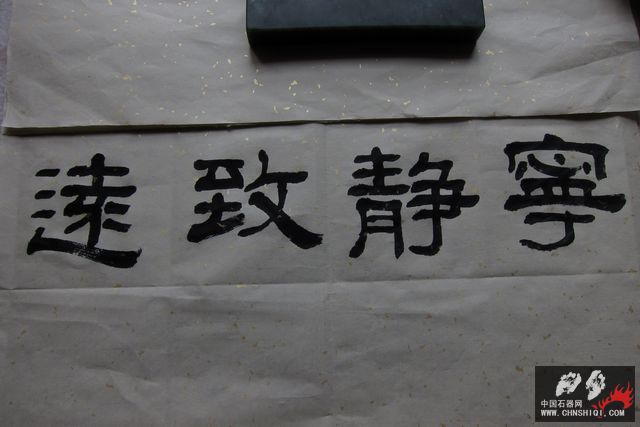 寧静致遠
中国石器网
WWW.CHNSHIQI.COM